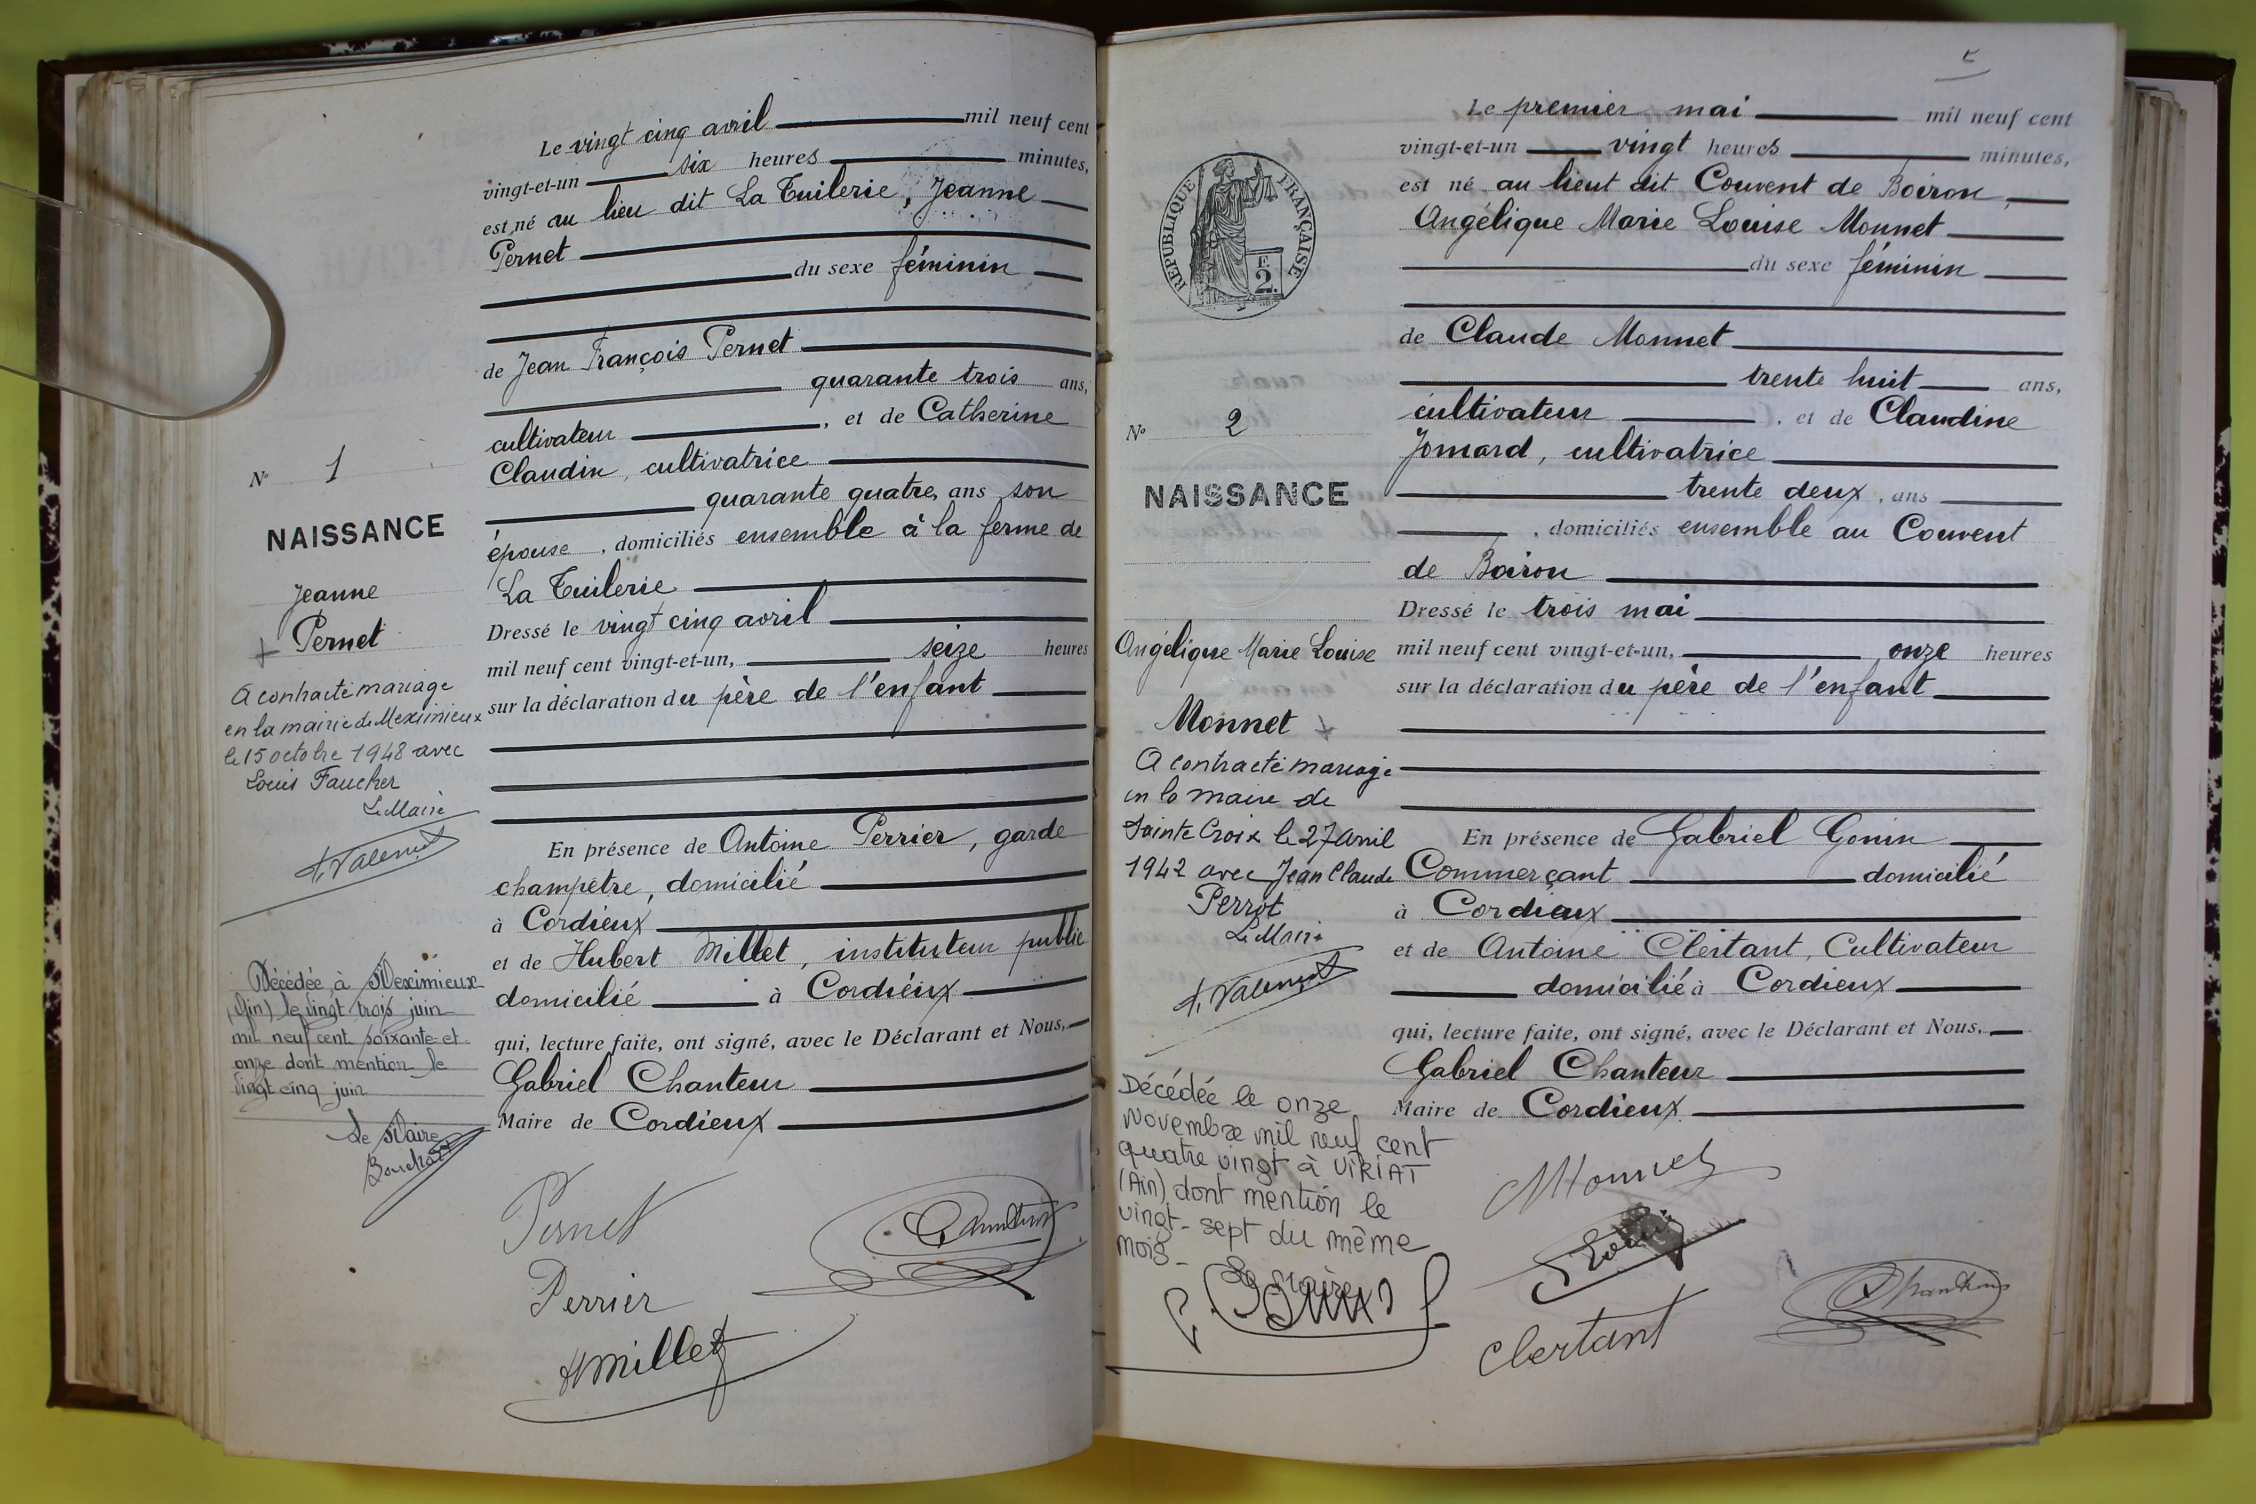 Le vingt cinq avril mil neuf cent
vingt-et-un six heures minutes,
est né au lieu dit La Tuilerie, Jeanne
Pernet
du sexe féminin
de Jean François Pernet
quarante trois ans,
cultivateur, et de Catherine
Claudin, cultivatrice
quarante quatre, ans son
épouse, domiciliés ensemble à la ferme de
La Tuilerie
Dressé le vingt cinq avril
mil neuf cent vingt-et-un, seize heures
sur la déclaration du père de l'enfant
En présence de Antoine Perrier, garde
champêtre, domicilié
à Cordieux
et de Hubert Millet, instituteur public
domicilié à Cordieux
qui, lecture faite, ont signé, avec le Déclarant et Nous,
Gabriel Chanteur
Maire de Cordieux
Pernet
Perrier
H Millet
No 1
NAISSANCE
Jeanne
+ Pernet
A contracté mariage
en la mairie de Meximieux
le 15 octobre 1948 avec
Louis Faucher
Le Maire
Décédée à Meximieux
(Ain) le vingt trois juin
mil neuf cent soixante et
onze dont mention le
vingt cinq juin
Le Maire
Le premier mai mil neuf cent
vingt-et-un vingt heures minutes,
est né au lieut dit Couvent de Boiron,
Angélique Marie Louise Monnet
du sexe féminin
de Claude Monnet
trente huit ans,
cultivateur, et de Claudine
Jomard, cultivatrice
trente deux, ans
, domiciliés ensemble au Couvent
de Boiron
Dressé le trois mai
mil neuf cent vingt-et-un, onze heures
sur la déclaration du père de l'enfant
En présence de Gabriel Gonin
Commerçant domicilié
à Cordieux
et de Antoine Clertant, Cultivateur
domicilié à Cordieux
qui, lecture faite, ont signé, avec le Déclarant et Nous,
Gabriel Chanteur
Maire de Cordieux
Monnet
Clertant
REPUBLIQUE FRANÇAISE
F.
2.
No 2
NAISSANCE
Angélique Marie Louise
Monnet +
A contracté mariage
en la mairie de
Sainte Croix le 27 avril
1942 avec Jean Claude
Perrot
Le Maire
Décédée le onze
Novembre mil neuf cent
quatre vingt à VIRIAT
(Ain) dont mention le
vingt-sept du même
mois-
Le Maire